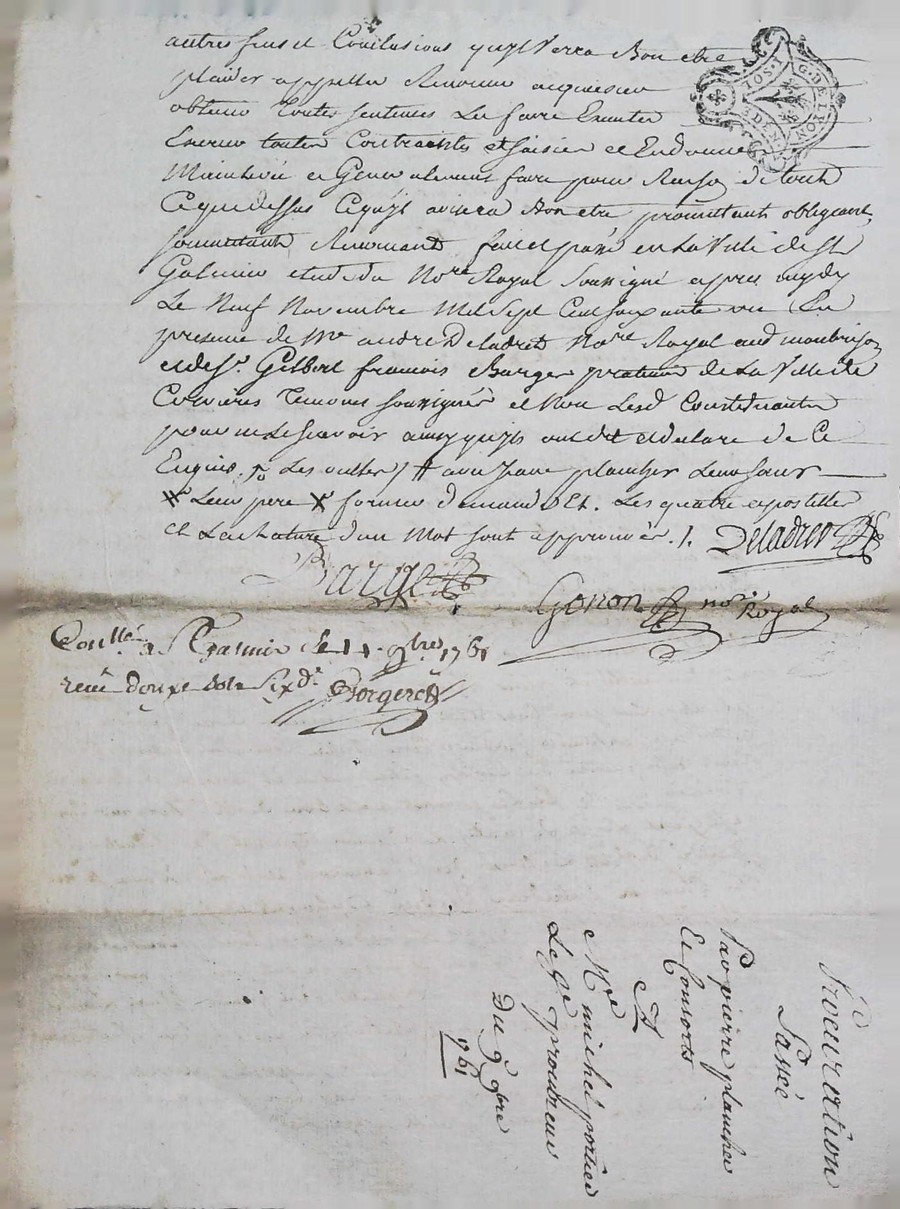 autres fins et Conclusions quyl Verra Bon etre
plaider appeller Renoncer acquiescer
obtenir toutes sentences Les faire Executer
Exercer toutes Contraintes et saisies et En donner
Mainlevée et Generalement faire pour Raison de tout
Ce que dessus Ce quyl avisera Bon etre promettant obligeant
soumettant Renonçant fait et passé en La Ville de St
Galmier etude du Nore Royal Soussigné apres midy
Le Neuf Novembre Mil Sept Cent soixante un En
presence de Me andre Deladret Nore Royal audt montbrison
et de Sr. Gilbert francois Barger praticien de La Ville de
Cervieres Temoins soussignés et Non Lesd Constituants
pour ne Le scavoir ainsy quyls ont dit et declaré de Ce
Enquis. Les oultes avec Jeane plancher Leur soeur
Leur pere former demande et. Les quatre apostilles
et La rature d'un Mot sont approuvés ./. Deladret
Barge
Gonon nore Royal
Conllé a St Galmier le 11 9bre 1761
receu douze sols six d. Borger
G. DE LYON
1 SOL
DEN.
Procuration
Passé
Par pierre plancher
Et Consorts
A
Mre michel portier
Le ge procureur
Du 9e 9bre
1761